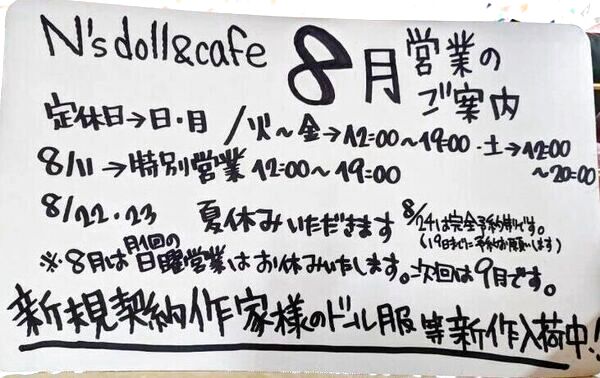 N's doll&cafe 8月 営業の
ご案内
定休日→日・月 /火～金→12:00～19:00・土→12:00
～20:00
8/11→特別営業 12:00～19:00
8/22・23 夏休みいただきます 8/24は完全予約制です。
(19日までに予約お願いします)
※8月は月1回の日曜営業はお休みいたします。次回は9月です。
新規契約作家様のドール服等新作入荷中!!